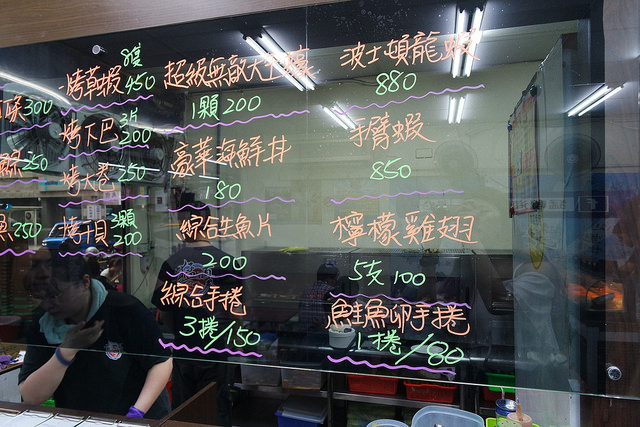 8隻
烤草蝦 450
3片
烤下巴 200
烤大卷 250
2顆
烤干貝 200
300
250
250
超級無敵大生蠔
1顆 200
豪華海鮮丼
180
綜合生魚片
200
綜合手捲
3捲/150
波士頓龍蝦
880
手臂蝦
850
檸檬雞翅
5支 100
鮭魚卵手捲
1捲/80